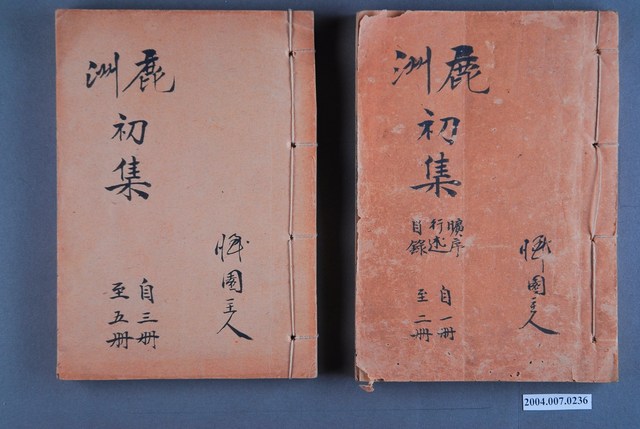 鹿洲
初集
曠序
行述
目錄
自一冊
至二冊
園主人
鹿洲
初集
自三冊
至五冊
園主人
2004.007.0236